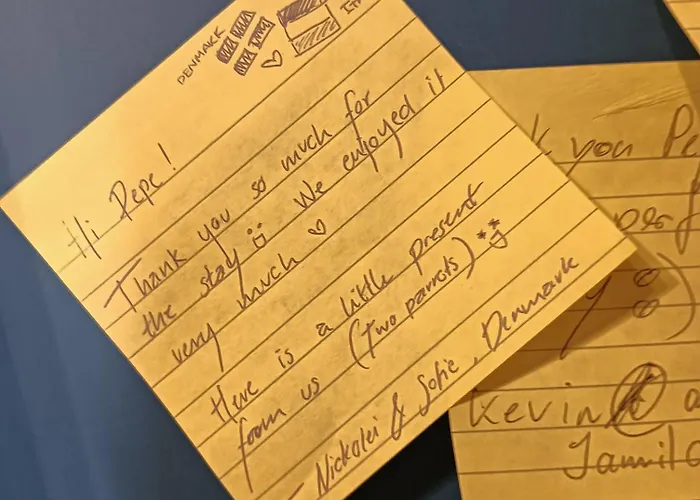 DENMARK
Hi Pepe!
Thank you so much for
the stay :) We enjoyed it
very much ♡
Here is a little present
from us (Two parrots) :)
Nickolei & Sofie, Denmark
you
Kevin
Jamil